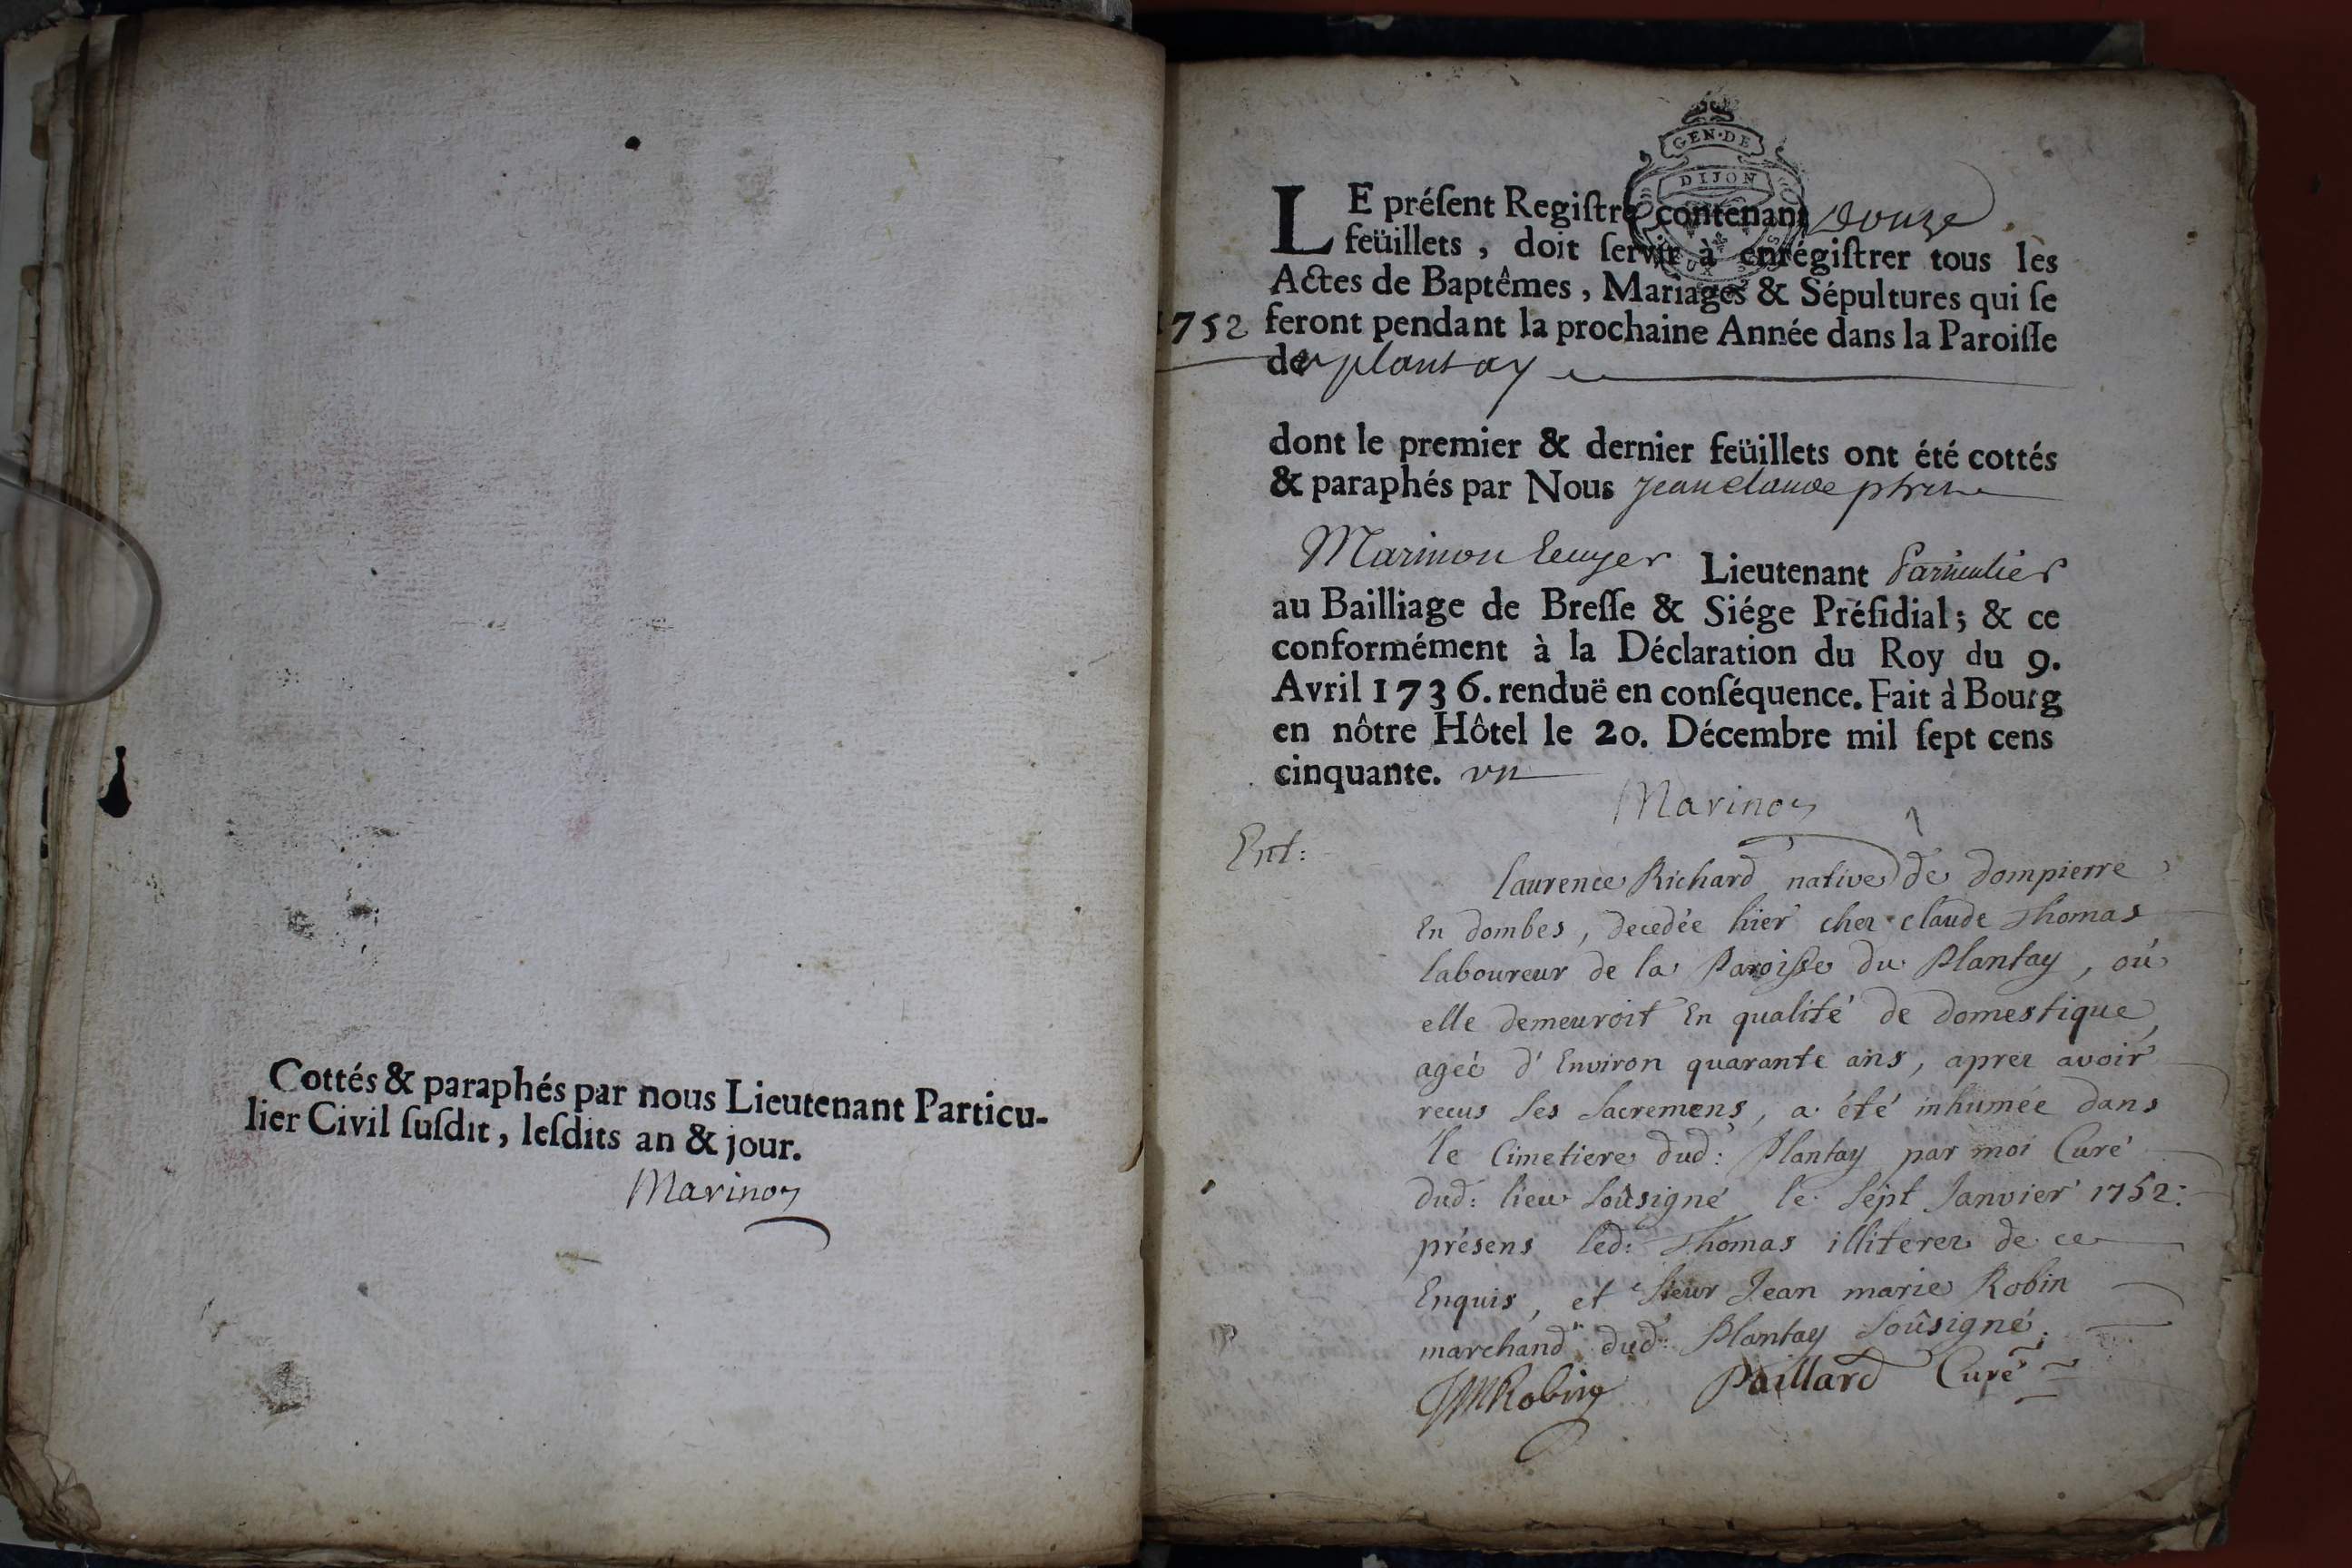 Cottés & paraphés par nous Lieutenant Particu-
lier Civil ſuſdit, leſdits an & jour.
Marinon
GEN·DE
DIJON
DEUX S
LE préſent Regiſtre contenant Douze
feüillets, doit ſervir à enrégiſtrer tous les
Actes de Baptêmes, Mariages & Sépultures qui ſe
1752 feront pendant la prochaine Année dans la Paroiſſe
de plantay
dont le premier & dernier feüillets ont été cottés
& paraphés par Nous Jean claude
Marinon Ecuyer Lieutenant Particulier
au Bailliage de Breſſe & Siége Préſidial; & ce
conformément à la Déclaration du Roy du 9.
Avril 1736. renduë en conſéquence. Fait à Bourg
en nôtre Hôtel le 20. Décembre mil ſept cens
cinquante. un
Marinon
Ent:
Laurence Richard native de Dompierre
En dombes, decedée hier chez claude Thomas
laboureur de la Paroisse du Plantay, où
elle demeuroit En qualité de domestique,
agée d'Environ quarante ans, aprez avoir
recus ses sacremens, a été inhumée dans
le Cimetiere dud: Plantay par moi Curé
dud: lieu soûsigné le sept Janvier 1752:
présens led: Thomas illiterez de ce
Enquis, et sieur Jean marie Robin
marchand dud: Plantay soûsigné.
JMRobin Paillard Curé